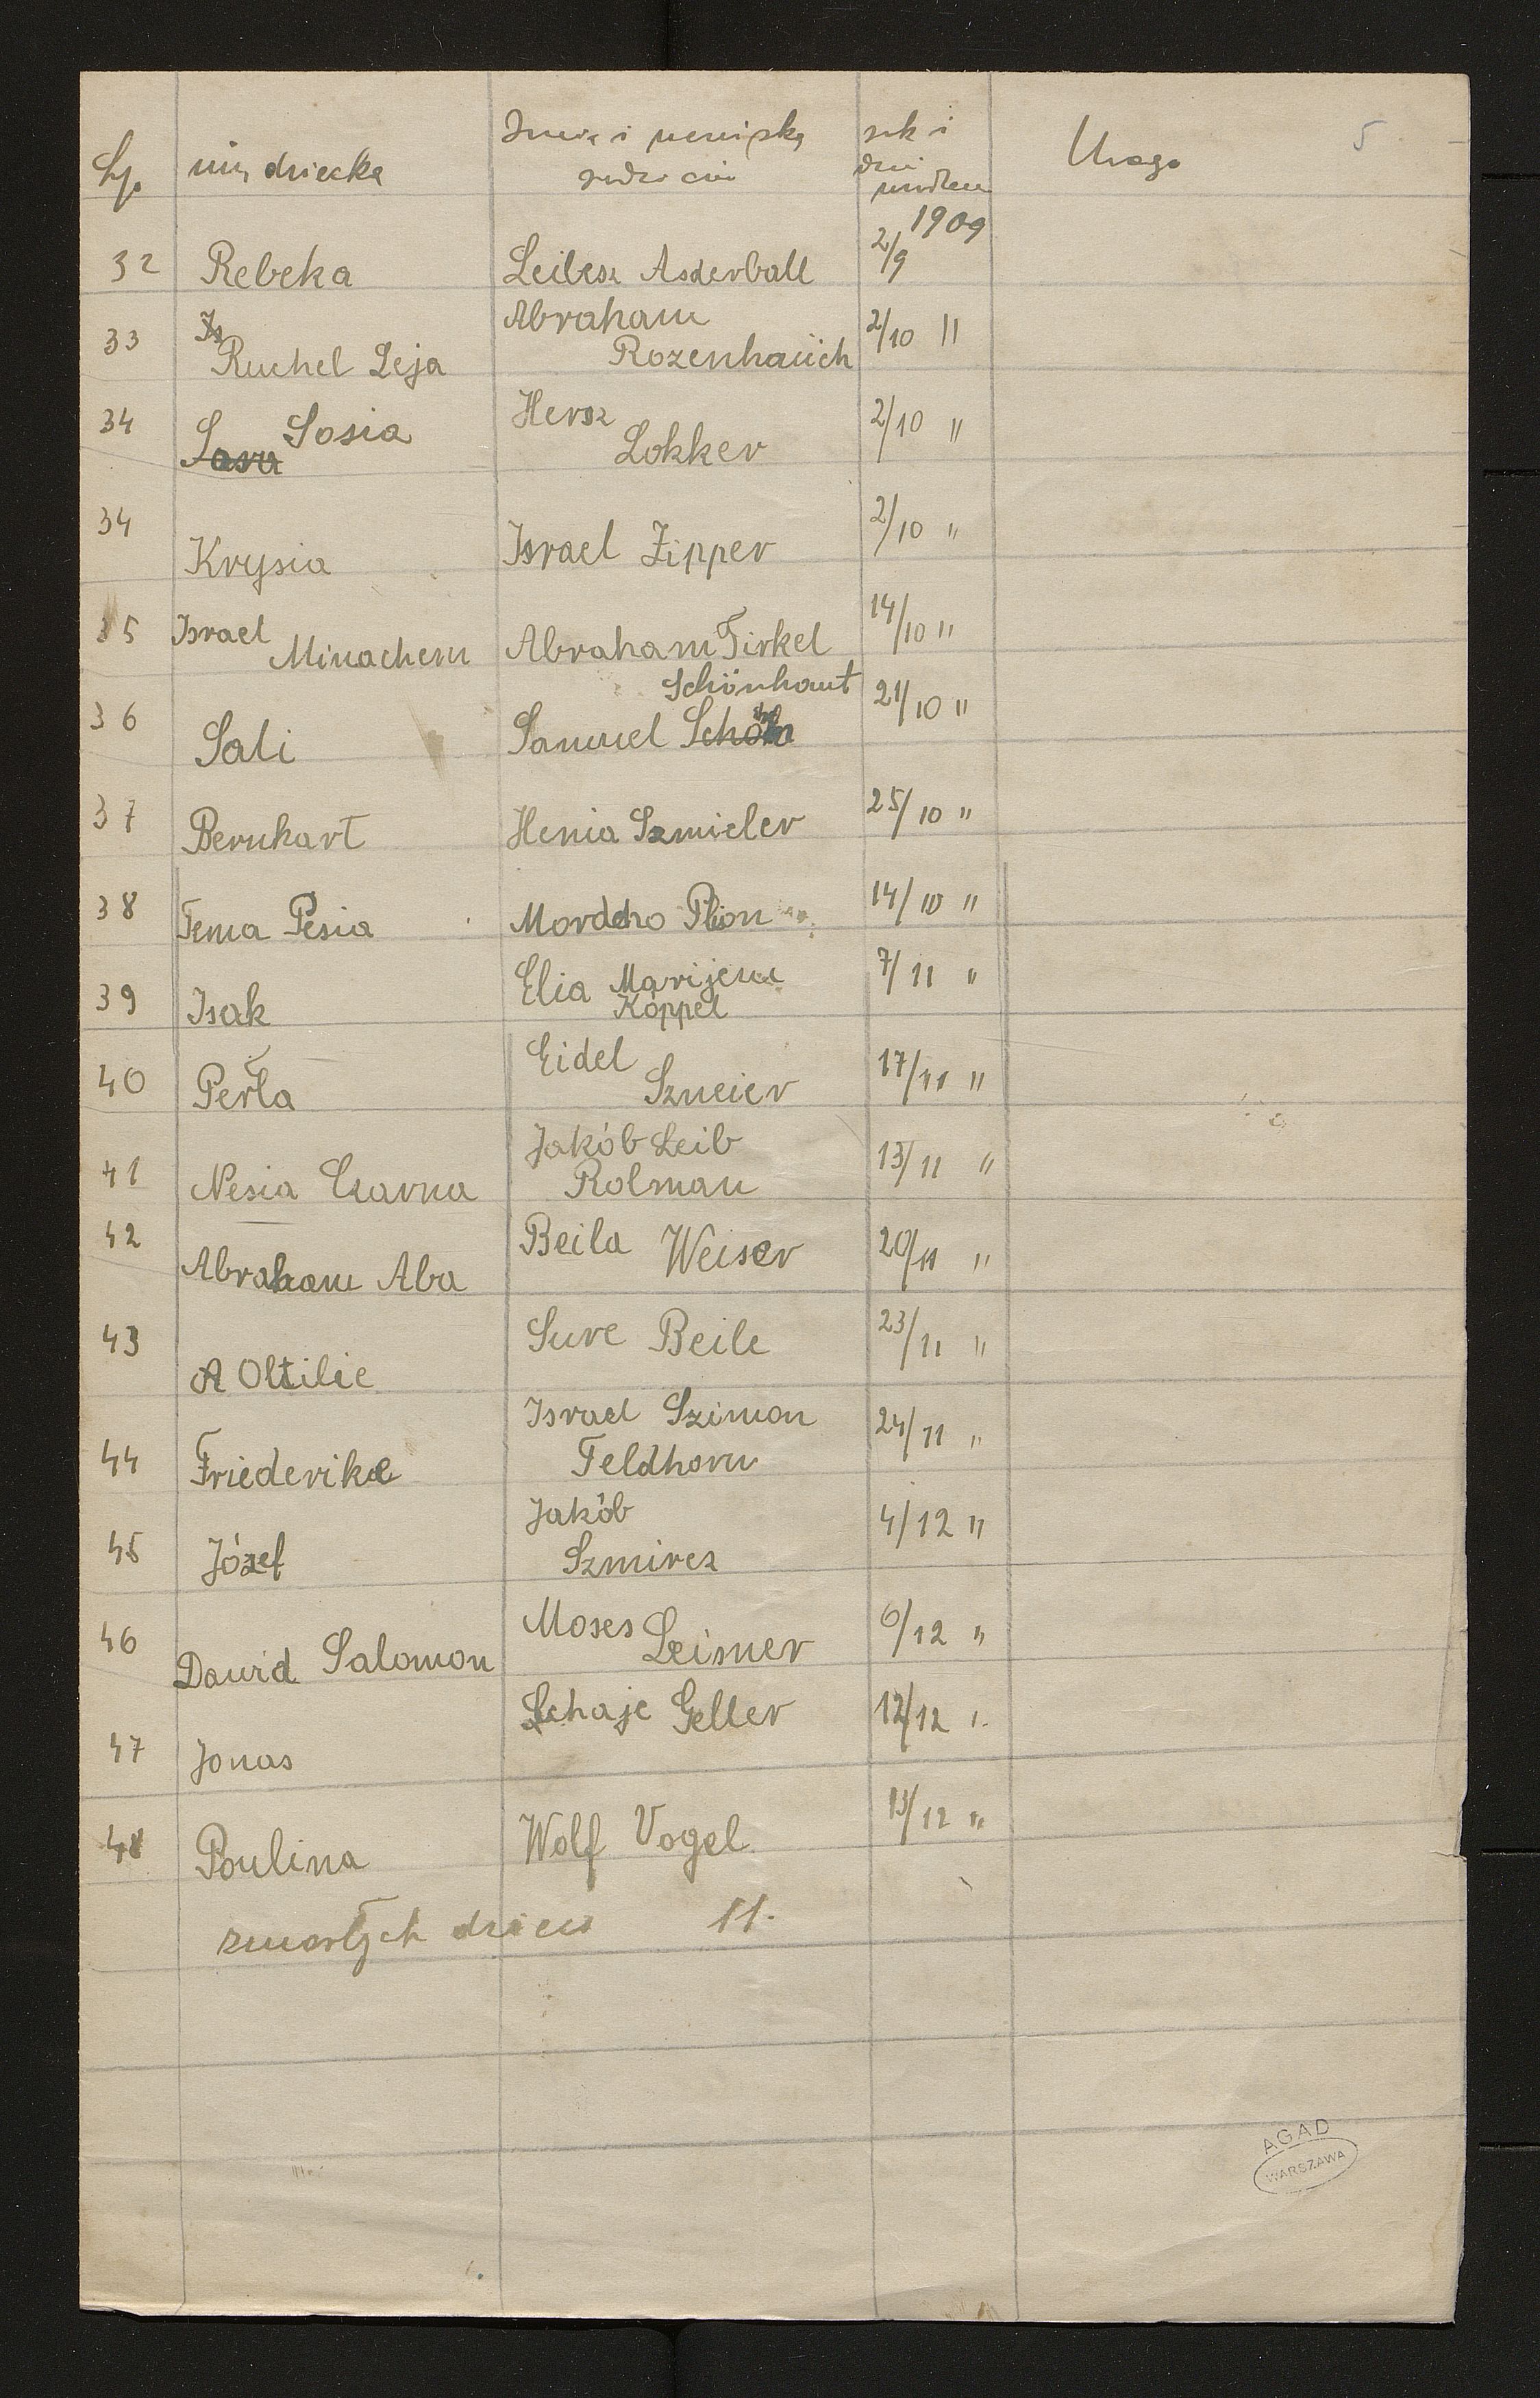 5
Lp. imię dziecka Imię i nazwiska rodziców rok i dni urodzen Uwaga
1909
32 Rebeka Leibesz Asderball 2/9
33 Ruchel Leja Abraham Rozenhauch 2/10 "
34 Sara Sosia Hersz Lokker 2/10 "
34 Krysia Israel Zipper 2/10 "
35 Israel Minachem Abraham Firkel 14/10 "
36 Sali Samuel Schön Schönhaut 21/10 "
37 Bernhart Henia Szmieler 25/10 "
38 Tema Pesia Mordcho Plion 14/10 "
39 Isak Elia Marijem Koppel 7/11 "
40 Perła Eidel Szneier 17/11 "
41 Nesia Czarna Jakób Leib Rolman 13/11 "
42 Abraham Aba Beila Weiser 20/11 "
43 A Oltilie Sure Beile 23/11 "
44 Friederike Israel Szimon Feldhorn 24/11 "
45 Józef Jakób Szmirer 4/12 "
46 Dawid Salomon Moses Leisner 6/12 "
47 Jonas Schaje Geller 12/12 "
48 Poulina Wolf Vogel 13/12 "
zmarłych dzieci 11.
AGAD
WARSZAWA